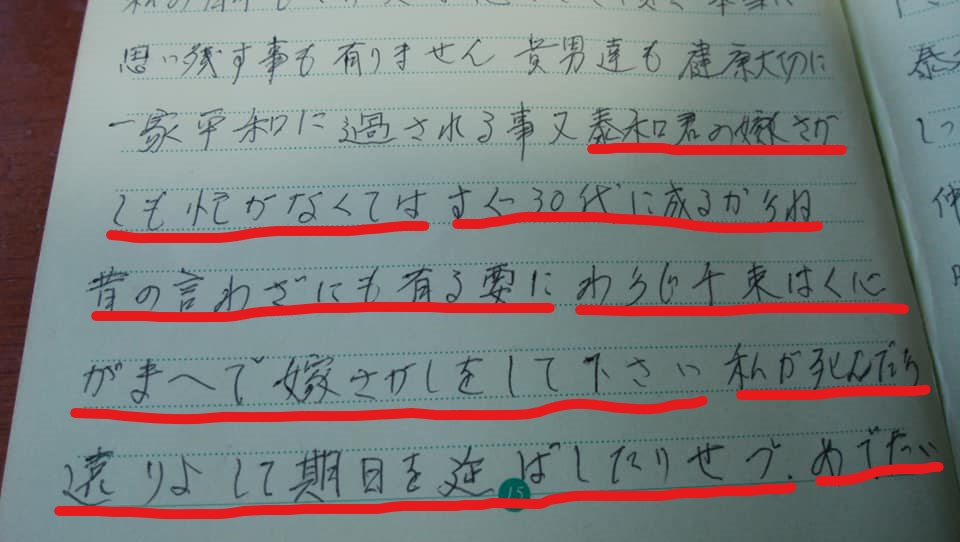 思い残す事も有りません 貴男達も 健康大切に
一家平和に過される事又泰和君の嫁さが
しも忙がなくては すぐ30代に成るからね
昔の言わざにも有る要に わらじ千束はく心
がまへで嫁さがしをして下さい 私が死んだら
遠りよして期日を延ばしたりせづ、めでたい
15
泰
しっ